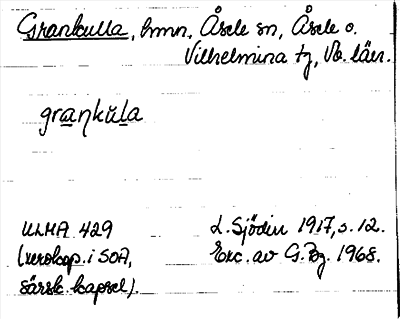 Grankulla, hmn, Åsele sn, Åsele o.
Vilhelmina tg, Vb. län.
grankŭla
ULMA 429
(xerokop. i SOA,
särsk. kapsel).
L. Sjödin 1917, s. 12.
Exc. av G. Bg. 1968.